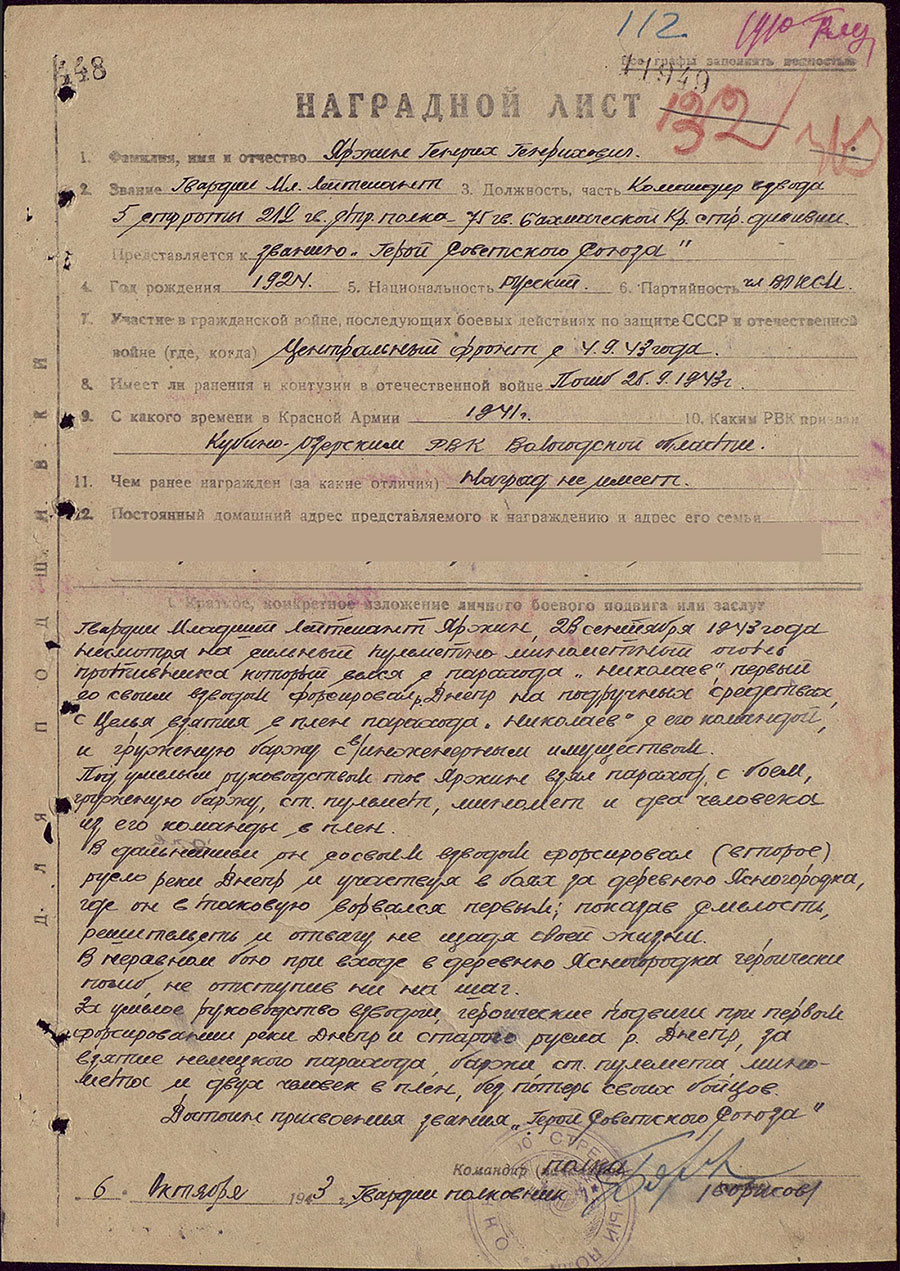 112.
448
Все графы заполнять полностью
11949
НАГРАДНОЙ ЛИСТ
132
1. Фамилия, имя и отчество Яржин Генрих Генрихович.
2. Звание Гвардии Мл. Лейтенант 3. Должность, часть Командир взвода
5 стрроты 212 гв. стр. полка - 75 гв. Бахмаческой Кр. стр. дивизии
Представляется к званию „Герой Советского Союза"
4. Год рождения 1924. 5. Национальность Русский. 6. Партийность чл ВЛКСМ.
7. Участие в гражданской войне, последующих боевых действиях по защите СССР и отечественной
войне (где, когда) Центральный фронт с 4.9.43 года.
8. Имеет ли ранения и контузии в отечественной войне Погиб 26.9.1943г.
9. С какого времени в Красной Армии 1941г. 10. Каким РВК призван
Кубино-Озерским РВК Вологодской области.
11. Чем ранее награжден (за какие отличия) Наград не имеет.
12. Постоянный домашний адрес представляемого к награждению и адрес его семьи
ДЛЯ ПОДШИВКИ
I. Краткое, конкретное изложение личного боевого подвига или заслуг
Гвардии Младший Лейтенант Яржин, 23 сентября 1943 года
несмотря на сильный пульметно-минометный огонь
противника который велся с парахода „Николаев", первый
со своим взводом форсировал р. Днепр на подручных средствах,
с Целья взятия в плен парахода „Николаев" с его командой,
и груженую баржу с в/инженерным имуществом.
Под умелым руководством тов Яржин взял параход, с боем,
груженую баржу, ст. пульмет, миномет и два человека
из его команды в плен.
В дальнейшем он со своим взводом форсировал (второе)
русло реки Днепр и участвуя в боях за деревнею Ясногородка,
где он в таковую ворвался первым; показав смелость,
решительсть и отвагу не щадя своей жизни.
В неравном бою при входе в деревнею Ясногородка героически
погиб не отступив ни на шаг.
За умелое руководство взводом, героические подвиги при первом
форсировании реки Днепр и старого русла р. Днепр, за
взятие немецкого парахода, баржи ст. пулемета, мино-
мета и двух человек в плен, без потерь своих бойцов.
Достоин присвоения звания „Герой Советского Союза"
Командир полка
6 Октября 1943 г. Гвардии полковник /Борисов/